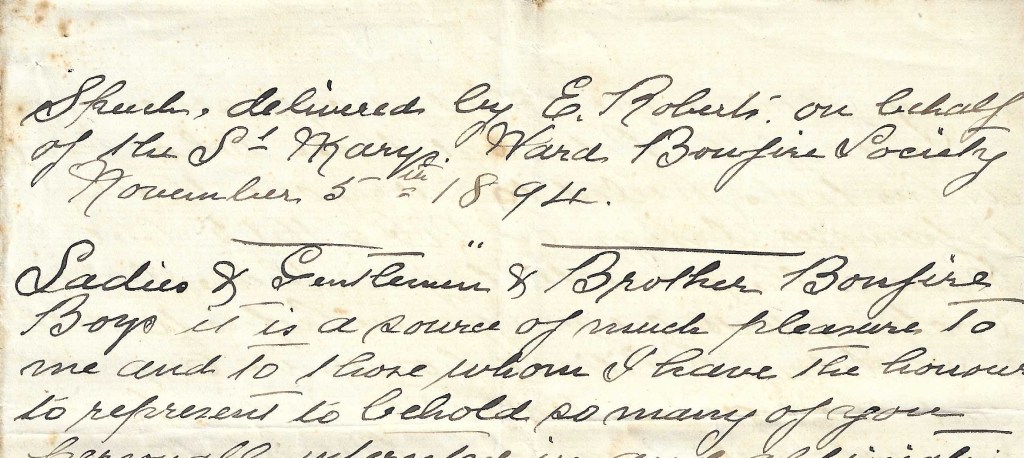 Speech, delivered by E. Roberts. on behalf
of the St Marys. Ward Bonfire Society
November 5th 1894.
Ladies & Gentlemen" & Brother Bonfire
Boys it is a source of much pleasure to
me and to those whom I have the honour
to represent to behold so many of you
personally interested in and